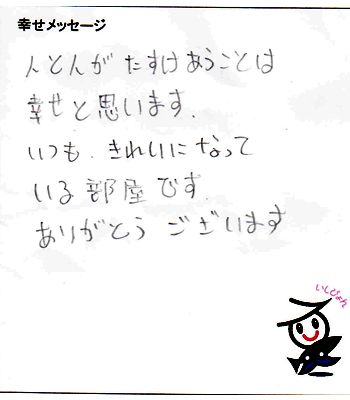 幸せメッセージ
人とんが たすけあうことは
幸せと思います.
いつも. きれいになって
いる部屋です.
ありがとう ございます
いしぴょん